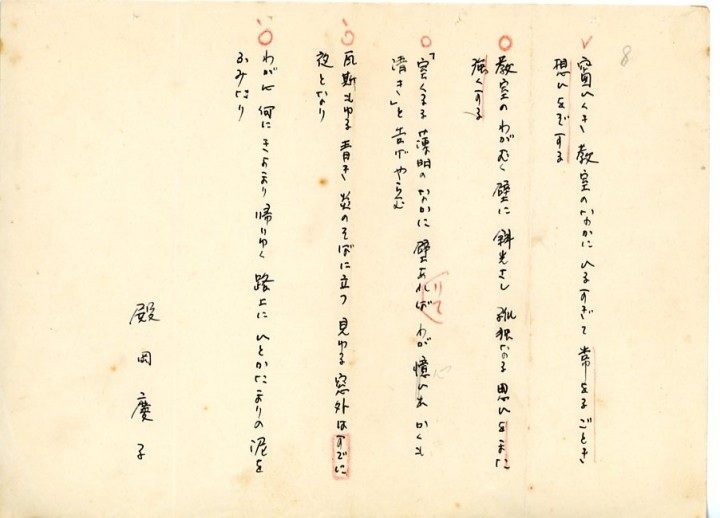 8
窓ひくき 教室のなかに ひるすぎて 常なるごとき
想ひをぞする
教室の わがむく 壁に 斜光さし 孤独なる 思ひをまた
強くする
「室くるる 薄明の なかに 壁あれば わが 憶ひ出 かくも
りて
清き」と 告げやらむ
瓦斯もゆる 青き 炎のそばに立つ 見ゆる 窓外は すでに
夜となり
わが心 何に きよまり 帰りゆく 路上に ひとかたまりの 泥を
ふみたり
殿岡慶子